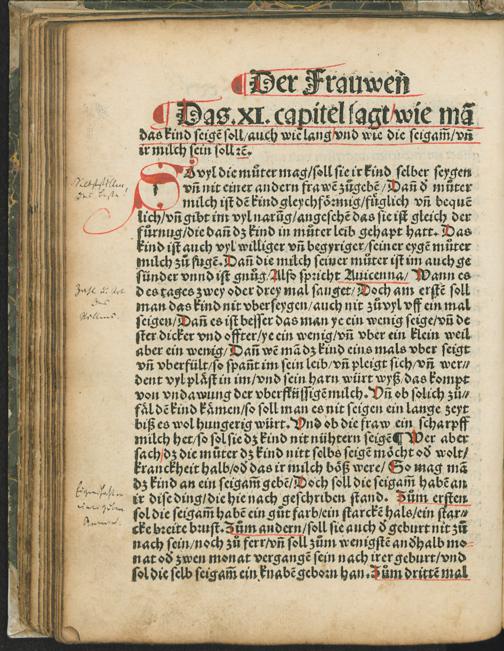 Der Frauwen
Das .XI. capitel sagt wie mā
das kind seigē soll/auch wie lang/vnd wie die seigam̄/vn̄
ir milch sein soll ꝛē.
So vyl die můter mag/soll sie ir kind selber seygen
vn̄ nit einer andern frawē zůgebē/Dan̄ d můter
milch ist dē kind gleychförmig/füglich vn̄ bequē
lich/vn̄ gibt im vyl narūg/angesehē das sie ist gleich der
fürnug/die dan̄ dz kind in můter leib gehapt hatt. Das
kind ist auch vyl williger vn̄ begyriger/seiner eygē můter
milch zů sugē. Dan̄ die milch seiner můter ist im auch ge
sünder vnnd ist gnůg/Also spricht Auicenna/Wann es
d es tages zwey oder drey mal sauget/Doch am erstē soll
man das kind nit vberseygen/auch nit zů vyl vff ein mal
seigen/Dan̄ es ist besser das man ye ein wenig seige/vn̄ de
ster dicker vnd offter/ye ein wenig/vn̄ vber ein klein weil
aber ein wenig/Dan̄ wē mā dz kind eins mals vber seigt
vn̄ vberfült/so spant im sein leib/vn̄ pleigt sich/vn̄ wer⸗
dent vyl pläst in im/vnd sein harn würt wyß/das kompt
von vndawung der vberflüssigē milch. Vn̄ ob solich zů⸗
fäl dē kind kämen/so soll man es nit seigen ein lange zeyt
biß es wol hungerig würt. Vnd ob die fraw ein scharpff
milch het/so sol sie dz kind nit nühtern seigē ¶ Wer aber
sach/dz die můter dz kind nitt selbs seigē möcht od wolt/
kranckheit halb/od das ir milch böß were/So mag mā
dz kind an ein seigam̄ gebē/Doch soll die seigam̄ habē an
ir dise ding/die hie nach geschriben stand. Zům ersten
sol die seigam̄ habē ein gůt farb/ein starckē halß/ein star⸗
cke breite brust. Zům andern/soll sie auch d geburt nit zů
nach sein/noch zů ferr/vn̄ soll zům wenigstē andhalb mo⸗
nat od zwen monat vergangē sein nach irer geburt/vnd
sol die selb seigam̄ ein knabē geborn han. Zům drittē mal